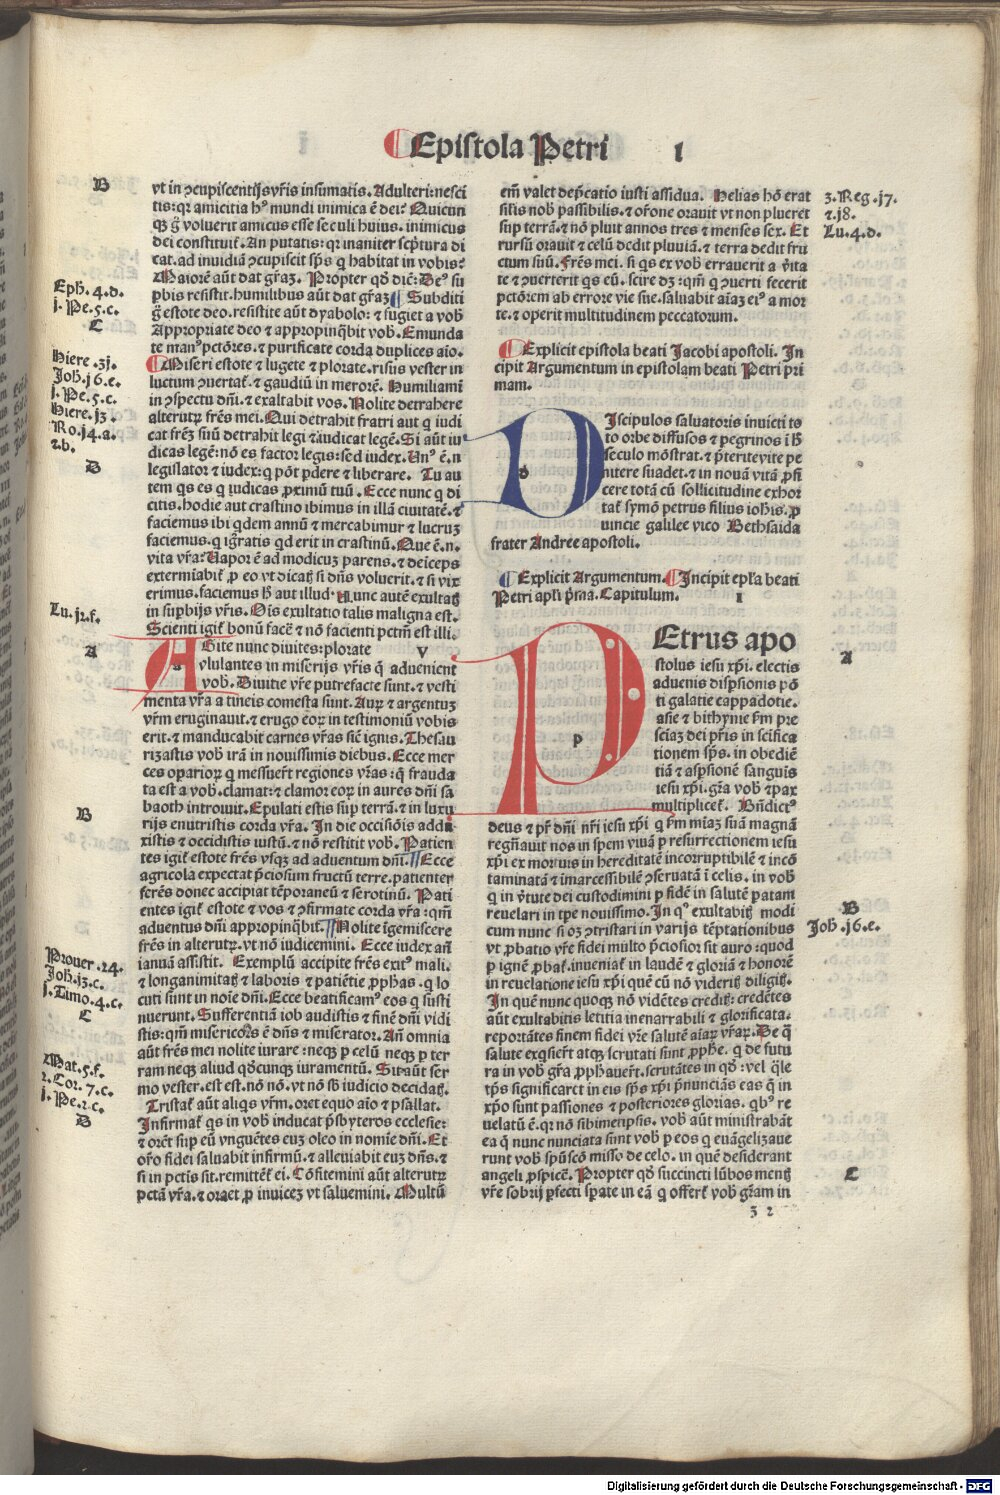 Epistola Petri I
B
vt in ꝯcupiscentijs vr̄is insumatis. Adulteri: nesci
tis: qꝛ amicitia hꝰ mundi inimica ē dei? Quicun
qꝫ g̊ voluerit amicus esse seculi huius. inimicus
dei constituit᷑. An putatis: qꝛ inaniter scp̄tura di
cat. ad inuidiā ꝯcupiscit sp̄s q̄ habitat in vobis?
Maiorē aūt dat gr̄az. Propter qd̓ dic̄: Deꝰ su
ꝑbis resistit. humilibus aūt dat gr̄az Subditi
g̊ estote deo. resistite aūt dyabolo: ⁊ fugiet a vob̓
Appropriate deo ⁊ appropinq̄bit vob̓. Emunda
te manꝰ pctōres. ⁊ purificate corda duplices aīo.
Miseri estote ⁊ lugete ⁊ plorate. risus vester in
luctum ꝯuertat᷑. ⁊ gaudiū in merorē. Humiliami
in ꝯspectu dn̄i. ⁊ exaltabit vos. Nolite detrahere
alterutꝝ fr̄es mei. Qui detrahit fratri aut q̄ iudi
cat fr̄ez suū detrahit legi ⁊ iudicat legē. Si aūt iu
dicas legē: nō es factor legis: sed iudex. Unꝰ ē.n
legislator ⁊ iudex: q̄ pōt ꝑdere ⁊ liberare. Tu au
tem qs es q̄ iudicas ꝓximū tuū. Ecce nunc q̄ di
citis. hodie aut crastino ibimus in illā ciuitatē. ⁊
faciemus ibi qꝛdem annū ⁊ mercabimur ⁊ lucruz
faciemus. q̄ ig̓ratis qd erit in crastinū. Que ē.n.
vita vr̄a? Uapor ē ad modicuz parens. ⁊ deiceps
exterminabit᷑ ꝓ eo vt dicatꝭ si dn̄s voluerit. ⁊ si vix
erimus. faciemus h̓ aut illud. Nunc autē exultatꝭ
in supbijs vr̄is. Ois exultatio talis maligna est.
Scienti igit᷑ bonū facē ⁊ nō facienti pctm̄ est illi.
Eph. 4. d.
j. Pe. 5. c.
C
Hiere. 3j.
Joh. j6. e.
j. Pe. 5. c.
Hiere. j3.
Ro. j4. a.
⁊. b.
D
Lu. j2. f.
A
Gite nunc diuites: plorate V
vlulantes in miserijs vr̄is q̄ aduenient
vob̓. Diuitie vr̄e putrefacte sunt. ⁊ vesti
menta vr̄a a tineis comesta sunt. Auꝝ ⁊ argentuz
vr̄m eruginauit. ⁊ erugo eoꝝ in testimoniū vobis
erit. ⁊ manducabit carnes vr̄as siē ignis. Thesau
rizastis vob̓ irā in nouissimis diebus. Ecce mer
ces oparioꝝ q̄ messuer̄t regiones vr̄as: q̄ frauda
ta est a vob̓. clamat: ⁊ clamor eoꝝ in aures dn̄i sa
baoth introiuit. Epulati estis suꝑ terrā. ⁊ in luxu
rijs enutristis corda vr̄a. In die occisiōis addu
xistis ⁊ occidistis iustū. ⁊ nō restitit vob̓. Patien
tes igit᷑ estote fr̄es vsqꝫ ad aduentum dn̄i. Ecce
agricola expectat p̄ciosum fructū terre. patienter
ferēs donec accipiat tēporaneū ⁊ serotinū. Pati
entes igit᷑ estote ⁊ vos ⁊ ꝯfirmate corda vr̄a: qm̄
aduentus dn̄i appropinq̄bit. Nolite īgemiscere
fr̄es in alterutꝝ. vt nō iudicemini. Ecce iudex an̄
ianuā assistit. Exemplū accipite fr̄es exitꝰ mali.
⁊ longanimitatꝭ ⁊ laboris ⁊ patiētie ꝓphas. q̄ lo
cuti sunt in noīe dn̄i. Ecce beatificamꝰ eos q̄ susti
nuerunt. Sufferentiā iob audistis ⁊ finē dn̄i vidi
stis: qm̄ misericors ē dn̄s ⁊ miserator. An̄ omnia
aūt fr̄es mei nolite iurare: neqꝫ ꝑ celū neqꝫ ꝑ ter
ram neqꝫ aliud qd̓cunqꝫ iuramentū. Sit aūt ser
mo vester. est est. nō nō. vt nō sb̓ iudicio decidatꝭ.
Tristat᷑ aūt aliqs vr̄m. oret equo aīo ⁊ psallat.
Infirmat᷑ qs in vob̓ inducat p̄sbyteros ecclesie:
⁊ orēt suꝑ eū vnguētes euz oleo in nomīe dn̄i. Et
or̄o fidei saluabit infirmū. ⁊ alleuiabit euz dn̄s. ⁊
si in pctis sit. remittēt᷑ ei. Cōfitemini aūt alterutꝝ
pctā vr̄a. ⁊ orate ꝓ inuicez vt saluemini. Multū
B
Prouer. 24.
Joh. j3. c.
j. Timo. 4. c.
C
Mat. 5. f.
2. Cor. 7. c.
j. Pe. 2. c.
D
em̄ valet dep̄catio iusti assidua. Helias hō erat
silis nob̓ passibilis. ⁊ or̄one orauit vt non plueret
suꝑ terrā. ⁊ nō pluit annos tres ⁊ menses sex. Et
rursū orauit ⁊ celū dedit pluuiā. ⁊ terra dedit fru
ctum suū. Fr̄es mei. si qs ex vob̓ errauerit a v̓ita
te ⁊ ꝯuerterit qs eū. scire dꝫ: qm̄ q̄ ꝯuerti fecerit
pctōrem ab errore vie sue. saluabit aīaz eiꝰ a mor
te. ⁊ operit multitudinem peccatorum.
3. Reg. j7.
⁊. j8.
Lu. 4. d.
Explicit epistola beati Jacobi apostoli. In
cipit Argumentum in epistolam beati Petri pri
mam.
d
Iscipulos saluatoris inuicti to
to orbe diffusos ⁊ pegrinos i h̓
seculo mōstrat. ⁊ p̄teritevite pe
nitere suadet. ⁊ in nouā vitā ꝓfi
cere totā cū sollicitudine exhor
tat᷑ symō petrus filius ioh̄is. ꝓ
uincie galilee vico Bethsaida
frater Andree apostoli.
Explicit Argumentum. Incipit epl̄a beati
Petri apl̄i pr̄ma. Capitulum. I
p
Etrus apo
stolus iesu xp̄i. electis
aduenis dispsionis pō
ti galatie cappadotie.
asie ⁊ bithynie sm̄ pre
sciaz dei pr̄is in scifica
tionem sp̄s. in obediē
tiā ⁊ aspsionē sanguis
iesu xp̄i. gr̄a vob̓ ⁊ pax
multiplicet᷑. Bn̄dictꝰ
deus ⁊ pr̄ dn̄i nr̄i iesu xp̄i q̄ sm̄ mīaz suā magnā
regn̄auit nos in spem viuā ꝑ resurrectionem iesu
xp̄i ex mortuis in hereditatē incorruptibilē ⁊ incō
taminatā ⁊ imarcessibilē ꝯseruatā ī celis. in vob̓
q̄ in v̓tute dei custodimini ꝑ fidē in salutē patam
reuelari in tp̄e nouissimo. In qꝰ exultabitꝭ modi
cum nunc si oꝫ ꝯtristari in varijs tēptationibus
vt ꝓbatio vr̄e fidei multo p̄ciosior sit auro: quod
ꝑ ignē ꝓbat᷑. inueniat᷑ in laudē ⁊ gloriā ⁊ honorē
in reuelatione iesu xp̄i quē cū nō videritꝭ diligitꝭ.
In quē nunc quoqꝫ nō vidētes creditꝭ: credētes
aūt exultabitis letitia inenarrabili ⁊ glorificata.
reportātes finem fidei vr̄e salutē aīaꝝ vr̄aꝝ. De q̄
salute exq̄sier̄t atqꝫ scrutati sunt ꝓphe. q̄ de futu
ra in vob̓ gr̄a ꝓphauer̄t. scrutātes in qd̓: vel q̄le
tp̄s significaret in eis sp̄s xp̄i p̄nunciās eas q̄ in
xp̄o sunt passiones ⁊ posteriores glorias. qbꝰ re
uelatū ē. qꝛ nō sibimetipsis. vob̓ aūt ministrabāt
ea q̄ nunc nunciata sunt vob̓ ꝑ eos q̄ euāgelizaue
runt vob̓ spūscō misso de celo. in quē desiderant
angeli ꝓspicē. Propter qd̓ succincti lūbos mentꝭ
vr̄e sobrij ꝑfecti sp̄ate in eā q̄ offert᷑ vob̓ gr̄am in
A
B
Joh. j6. e.
C
3 2
Digitalisierung gefördert durch die Deutsche Forschungsgemeinschaft - DFG